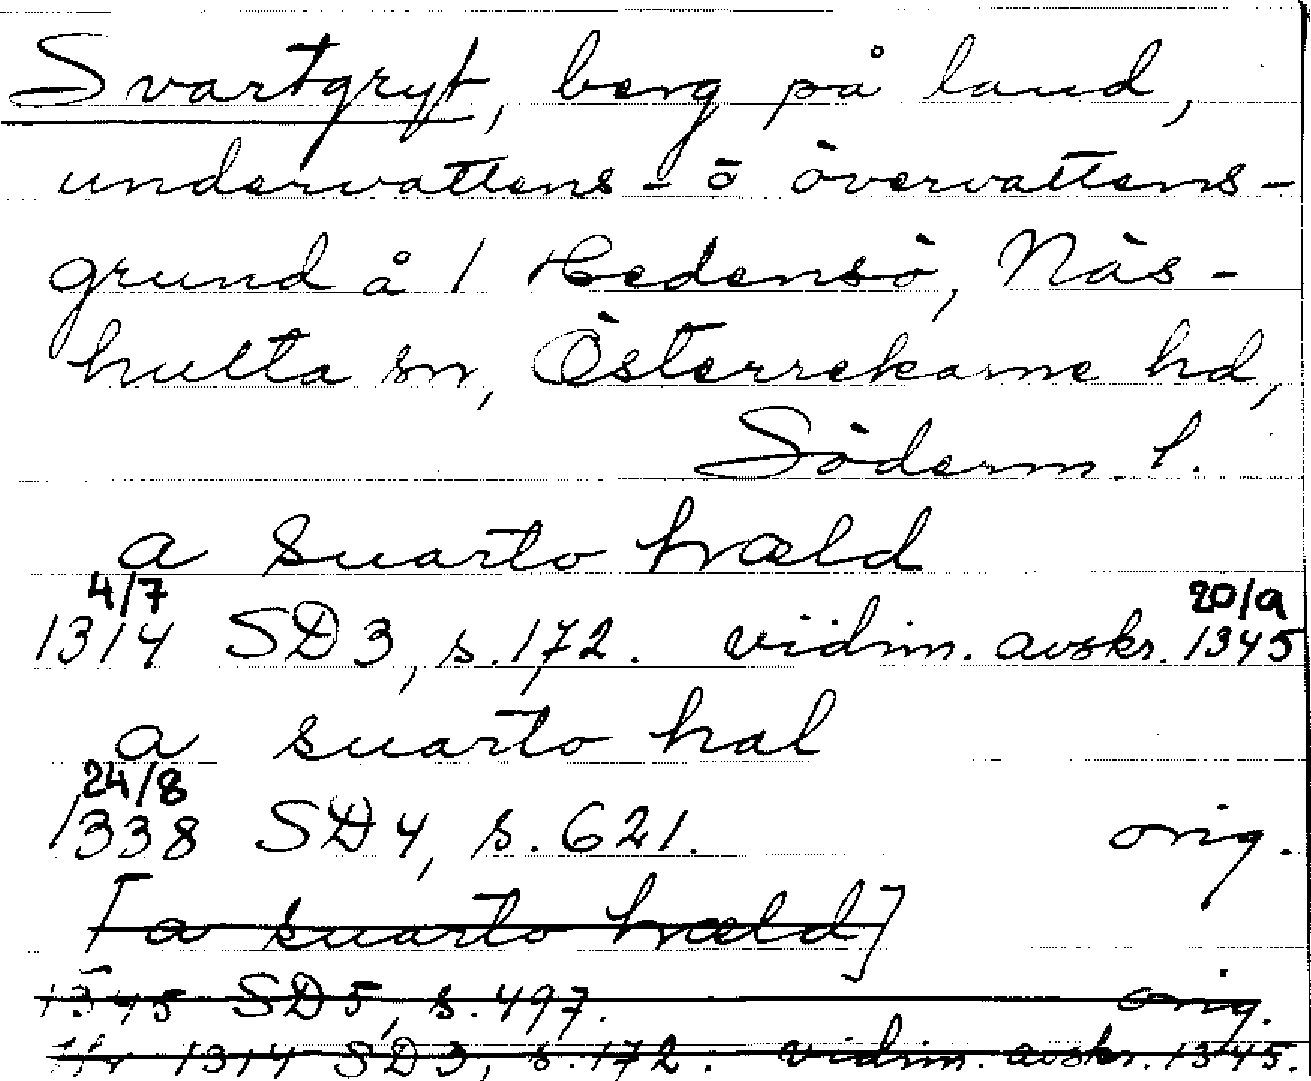 Svartgryt, berg på land,
undervattens- o övervattens-
grund å 1 Hedensö, Näs-
hulta sn, Österrekarne hd,
Söderm. l.
a suarto hræld
4/7 20/9
1314 SD3, s.172. vidim. avskr. 1345
a suarto hal
24/8
1338 SD4, s.621. orig.
[a suarto hræld]
1345 SD5, s.497. orig.
1314 SD3, s.172. vidim. avskr. 1345.